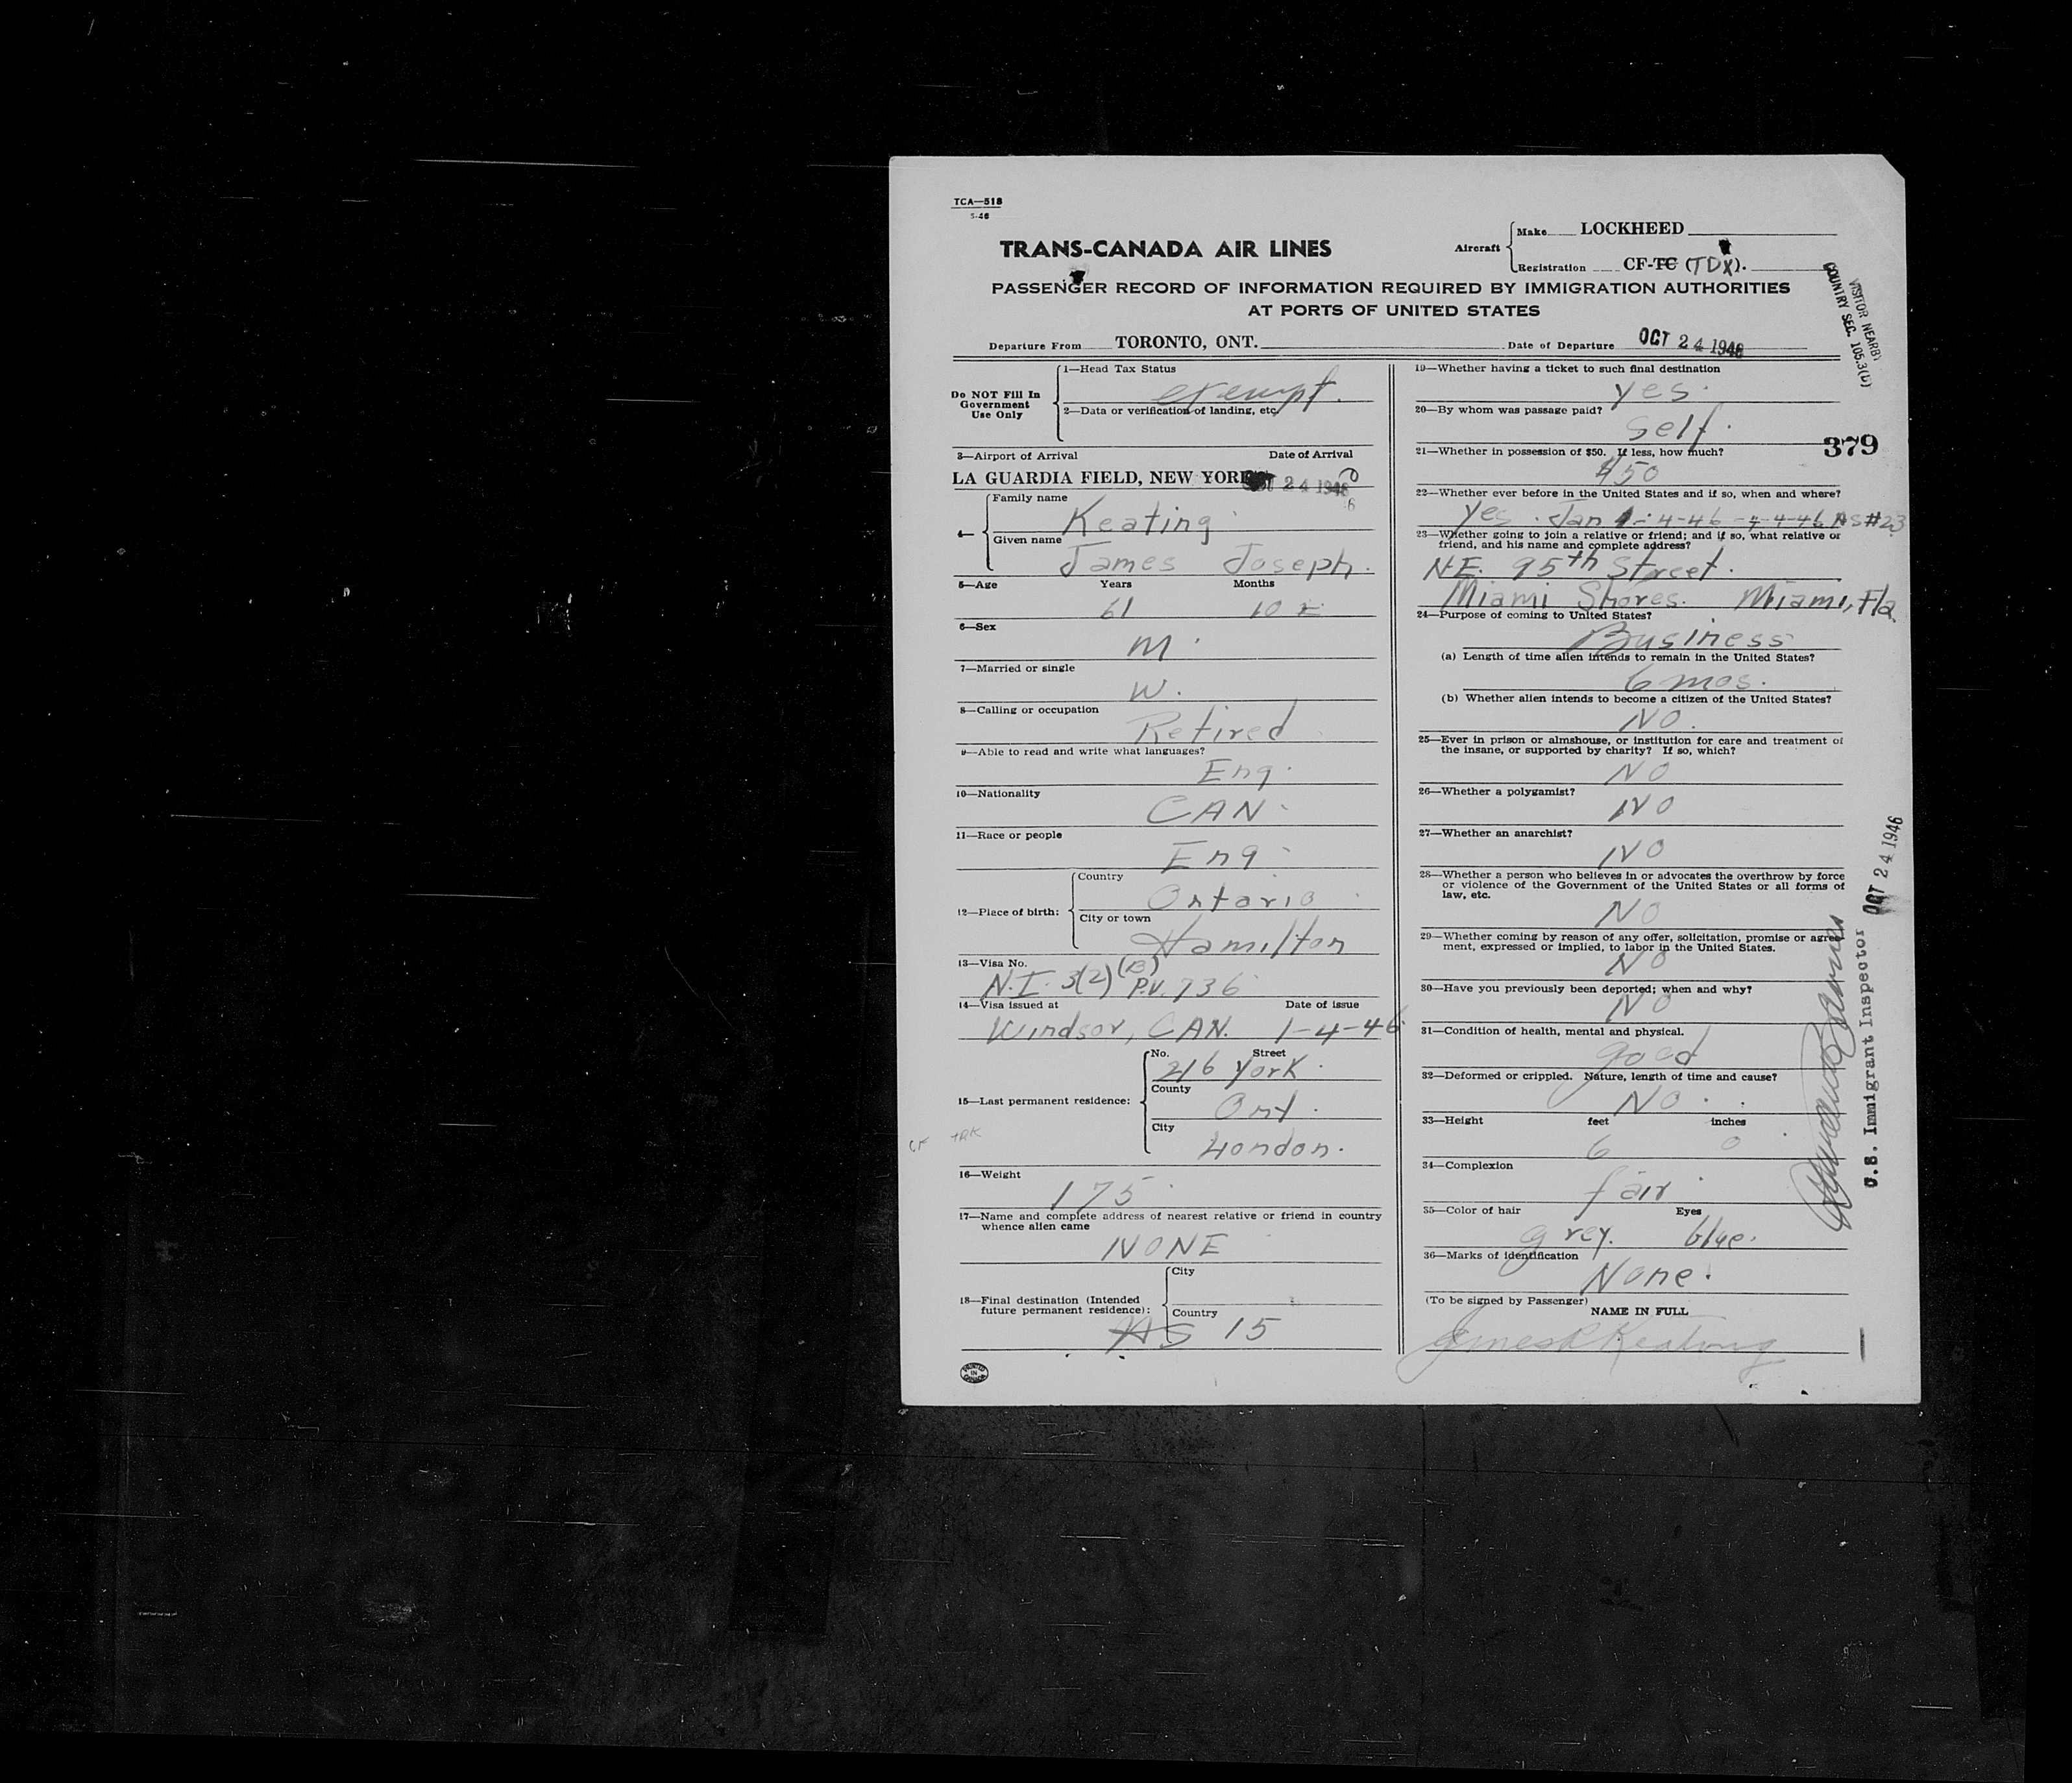 TCA—518
5-46
TRANS-CANADA AIR LINES
Aircraft
Make LOCKHEED
Registration CF-TC (TDX).
PASSENGER RECORD OF INFORMATION REQUIRED BY IMMIGRATION AUTHORITIES
AT PORTS OF UNITED STATES
VISITOR NEARBY
COUNTRY SEC. 105.3(b)
Departure From TORONTO, ONT. Date of Departure OCT 24 1946
Do NOT Fill In
Government
Use Only
1—Head Tax Status
exempt.
2—Data or verification of landing, etc.
3—Airport of Arrival Date of Arrival
LA GUARDIA FIELD, NEW YORK OCT 24 1946
4— Family name
Keating
Given name
James Joseph.
5—Age Years Months
61 10
6—Sex
M.
7—Married or single
W.
8—Calling or occupation
Retired
9—Able to read and write what languages?
Eng.
10—Nationality
CAN.
11—Race or people
Eng
12—Place of birth:
Country
Ontario
City or town
Hamilton
13—Visa No.
N.I. 3(2) (B) P.V. 736
14—Visa issued at Date of issue
Windsor, CAN. 1-4-46.
15—Last permanent residence:
No. Street
216 York.
County
Ont.
City
London.
16—Weight
175
17—Name and complete address of nearest relative or friend in country
whence alien came
NONE
18—Final destination (Intended
future permanent residence):
City
Country
15
PRINTED
IN
CANADA
19—Whether having a ticket to such final destination
yes.
20—By whom was passage paid?
Self.
379
21—Whether in possession of $50. If less, how much?
$50
22—Whether ever before in the United States and if so, when and where?
Yes. Jan 1-4-46 - 4-4-46 AS#23
23—Whether going to join a relative or friend; and if so, what relative or
friend, and his name and complete address?
N.E. 95th Street.
Miami Shores. Miami, Fla.
24—Purpose of coming to United States?
Business
(a) Length of time alien intends to remain in the United States?
6 mos.
(b) Whether alien intends to become a citizen of the United States?
NO.
25—Ever in prison or almshouse, or institution for care and treatment of
the insane, or supported by charity? If so, which?
NO
26—Whether a polygamist?
NO
27—Whether an anarchist?
NO
28—Whether a person who believes in or advocates the overthrow by force
or violence of the Government of the United States or all forms of
law, etc.
NO
29—Whether coming by reason of any offer, solicitation, promise or agree-
ment, expressed or implied, to labor in the United States.
NO
30—Have you previously been deported; when and why?
NO
31—Condition of health, mental and physical.
good
32—Deformed or crippled. Nature, length of time and cause?
NO.
33—Height feet inches
6 0
34—Complexion
fair
35—Color of hair Eyes
grey. blue.
36—Marks of identification
None.
(To be signed by Passenger) NAME IN FULL
James Keating
U.S. Immigrant Inspector OCT 24 1946